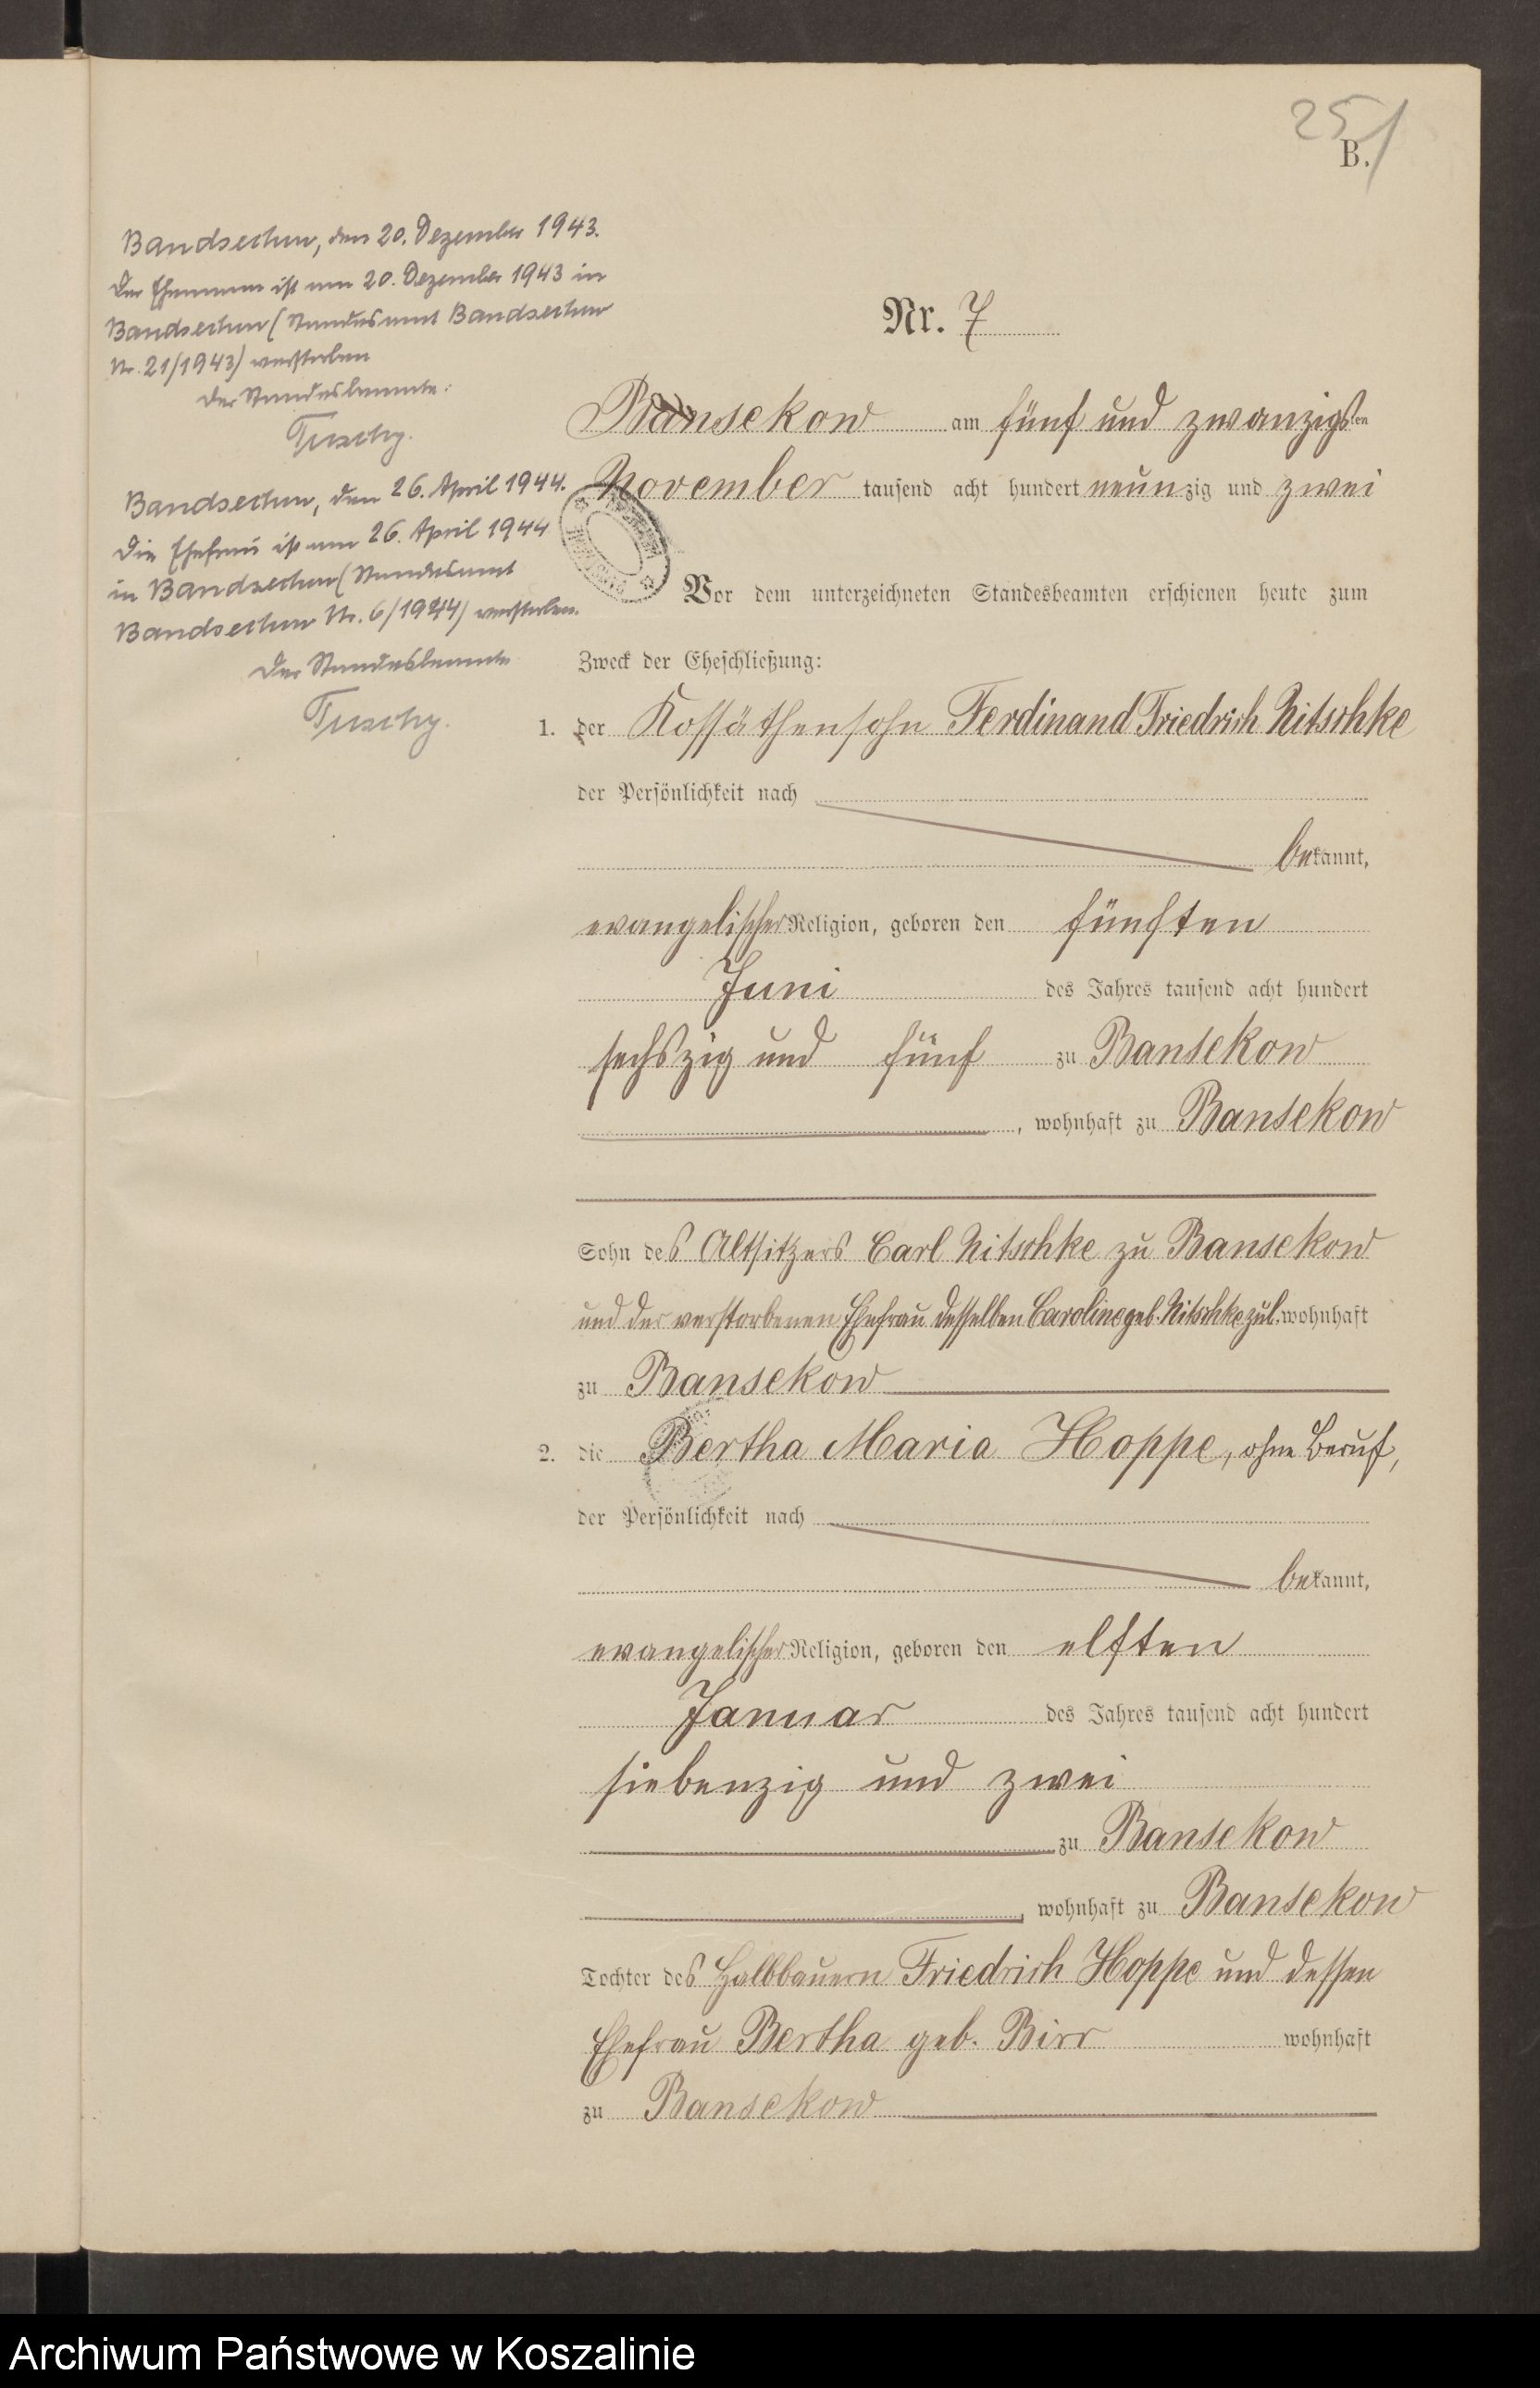 25
B.
Bandsechow, den 20. Dezember 1943.
Der Ehemann ist am 20. Dezember 1943 in
Bandsechow (Standesamt Bandsechow
Nr. 21/1943) verstorben
Der Standesbeamte:
Bandsechow, den 26. April 1944.
Die Ehefrau ist am 26. April 1944
in Bandsechow (Standesamt
Bandsechow Nr. 6/1944) verstorben.
Der Standesbeamte
Nr. 7
Bansekow am fünf und zwanzigsten
November tausend acht hundert neunzig und zwei
Vor dem unterzeichneten Standesbeamten erschienen heute zum
Zweck der Eheschließung:
1. der Kossäthensohn Ferdinand Friedrich Nitschke
der Persönlichkeit nach
bekannt,
evangelischer Religion, geboren den fünften
Juni des Jahres tausend acht hundert
sechszig und fünf zu Bansekow
, wohnhaft zu Bansekow
Sohn des Altsitzers Carl Nitschke zu Bansekow
und der verstorbenen Ehefrau desselben Caroline geb. Nitschke zul. wohnhaft
zu Bansekow
2. die Bertha Maria Hoppe, ohne Beruf,
der Persönlichkeit nach
bekannt,
evangelischer Religion, geboren den elften
Januar des Jahres tausend acht hundert
siebenzig und zwei
zu Bansekow
, wohnhaft zu Bansekow
Tochter des Halbbauern Friedrich Hoppe und dessen
Ehefrau Bertha geb. Birr wohnhaft
zu Bansekow
Archiwum Państwowe w Koszalinie